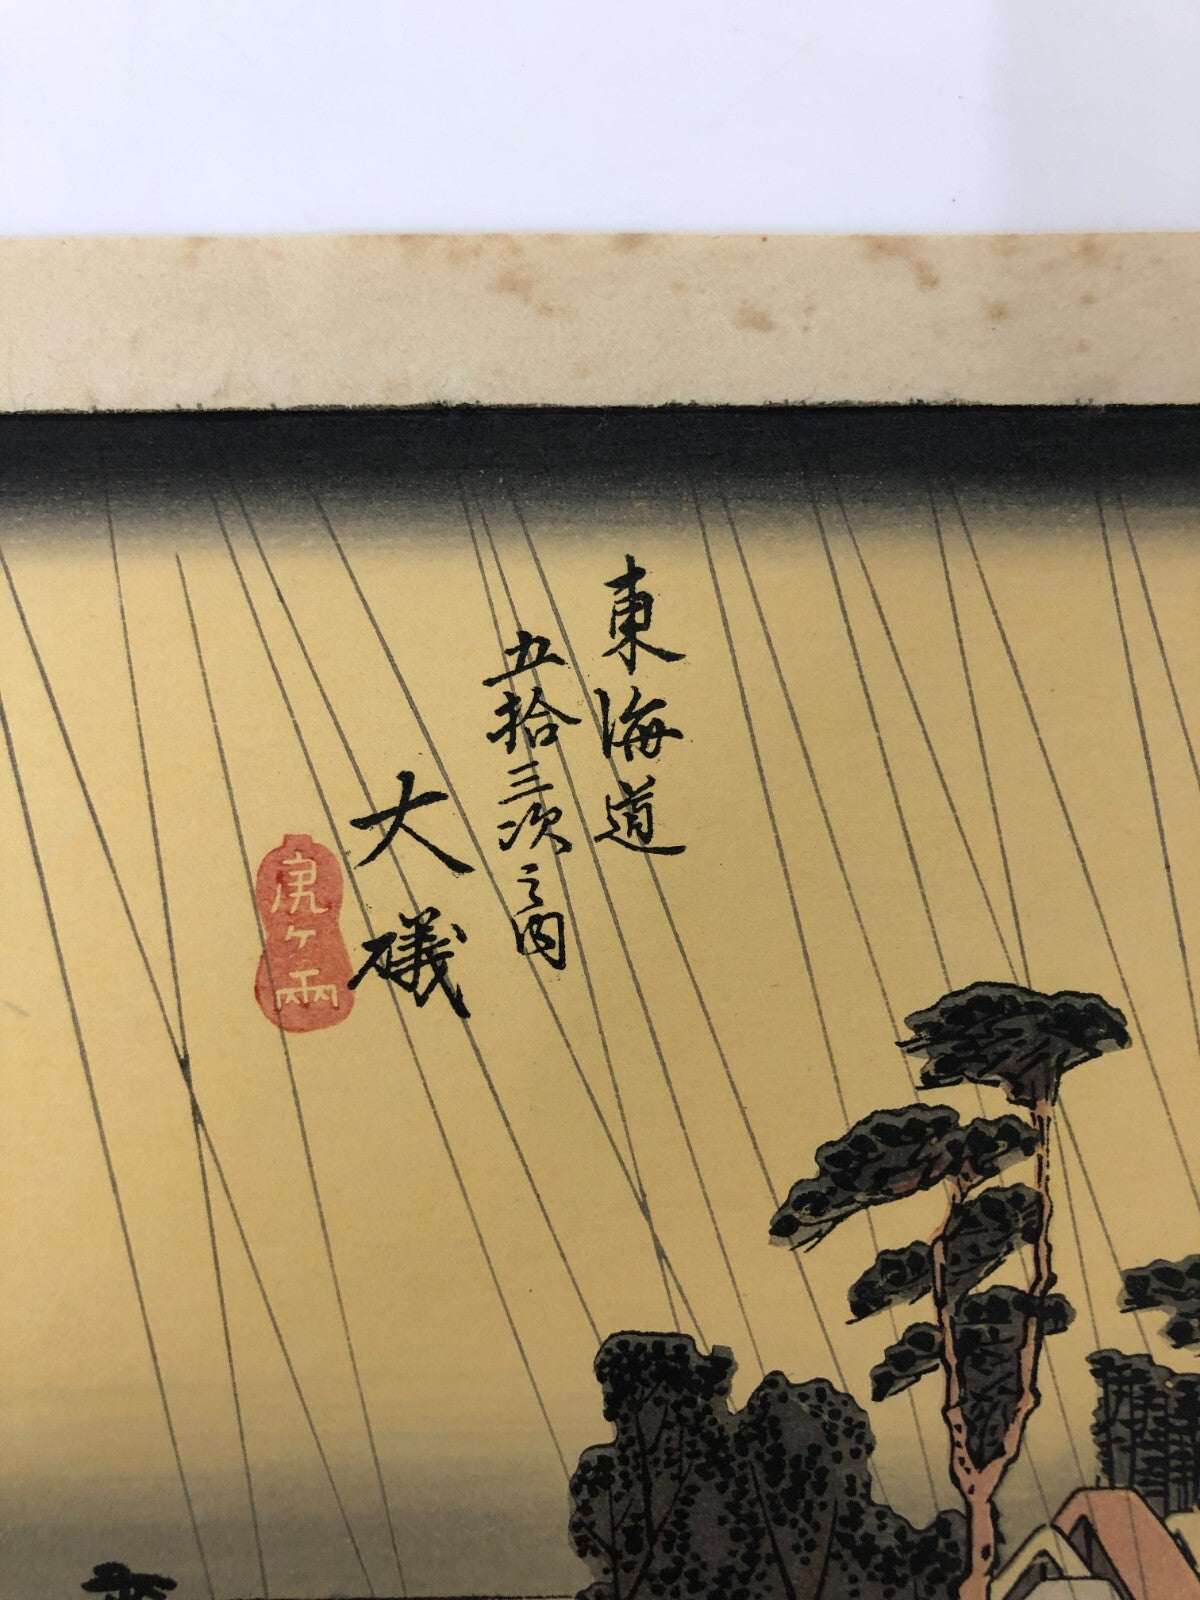 東海道
五拾三次之内
大磯
虎ケ雨